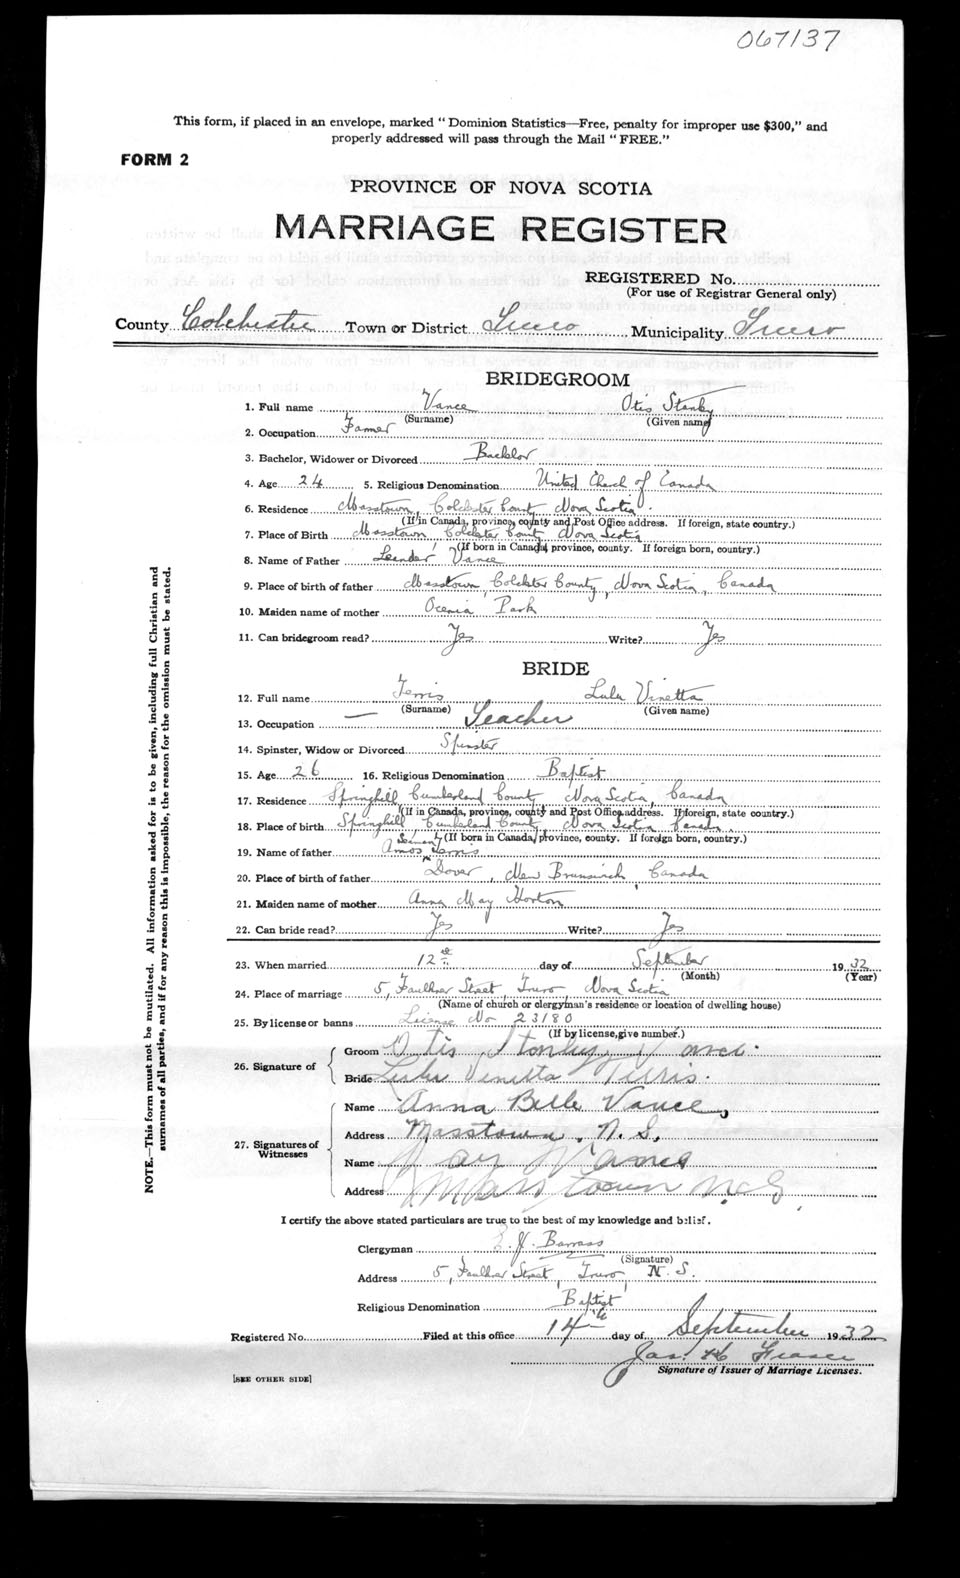 067137
This form, if placed in an envelope, marked "Dominion Statistics—Free, penalty for improper use $300," and
properly addressed will pass through the Mail "FREE."
FORM 2
PROVINCE OF NOVA SCOTIA
MARRIAGE REGISTER
REGISTERED No.
(For use of Registrar General only)
County Colchester Town or District Truro Municipality Truro
BRIDEGROOM
1. Full name Vance Otis Stanley
(Surname) (Given name)
2. Occupation Farmer
3. Bachelor, Widower or Divorced Bachelor
4. Age 24 5. Religious Denomination United Church of Canada
6. Residence Masstown, Colchester County, Nova Scotia.
(If in Canada, province, county and Post Office address. If foreign, state country.)
7. Place of Birth Masstown Colchester County Nova Scotia
(If born in Canada, province, county. If foreign born, country.)
8. Name of Father Leander Vance
9. Place of birth of father Masstown, Colchester County, Nova Scotia, Canada
10. Maiden name of mother Park
11. Can bridegroom read? Yes Write? Yes
BRIDE
12. Full name Ferris Lula Vinetta
(Surname) (Given name)
13. Occupation — Teacher
14. Spinster, Widow or Divorced Spinster
15. Age 26 16. Religious Denomination Baptist
17. Residence Springhill Cumberland County, Nova Scotia, Canada
(If in Canada, province, county and Post Office address. If foreign, state country.)
18. Place of birth Springhill Cumberland County Nova Scotia Canada
(If born in Canada, province, county. If foreign born, country.)
19. Name of father Amos Ferris
20. Place of birth of father Dover, New Brunswick, Canada
21. Maiden name of mother Anna May Horton
22. Can bride read? Yes Write? Yes
23. When married 12th day of September 1932
(Month) (Year)
24. Place of marriage 5, Faulkner Street, Truro Nova Scotia
(Name of church or clergyman's residence or location of dwelling house)
25. By license or banns License No 23180
(If by license, give number.)
26. Signature of
Groom Otis Stanley Vance.
Bride Lula Vinetta Ferris.
27. Signatures of Witnesses
Name Anna Belle Vance,
Address Masstown, N. S.
Name Ray Vance
Address Masstown N.S.
I certify the above stated particulars are true to the best of my knowledge and belief.
Clergyman E. J. Barrass
(Signature)
Address 5, Faulkner Street, Truro, N. S.
Religious Denomination Baptist
Registered No. Filed at this office 14th day of September 1932
Jas. H. Fraser
Signature of Issuer of Marriage Licenses.
[SEE OTHER SIDE]
NOTE.—This form must not be mutilated. All information asked for is to be given, including full Christian and
surnames of all parties, and if for any reason this is impossible, the reason for the omission must be stated.